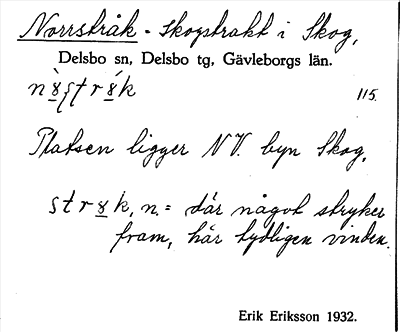 Norrstråk - Skogstrakt i Skog,
Delsbo sn, Delsbo tg, Gävleborgs län.
115.
Platsen ligger N.V. byn Skog.
n. = där något stryker
fram, här tydligen vinden.
Erik Eriksson 1932.